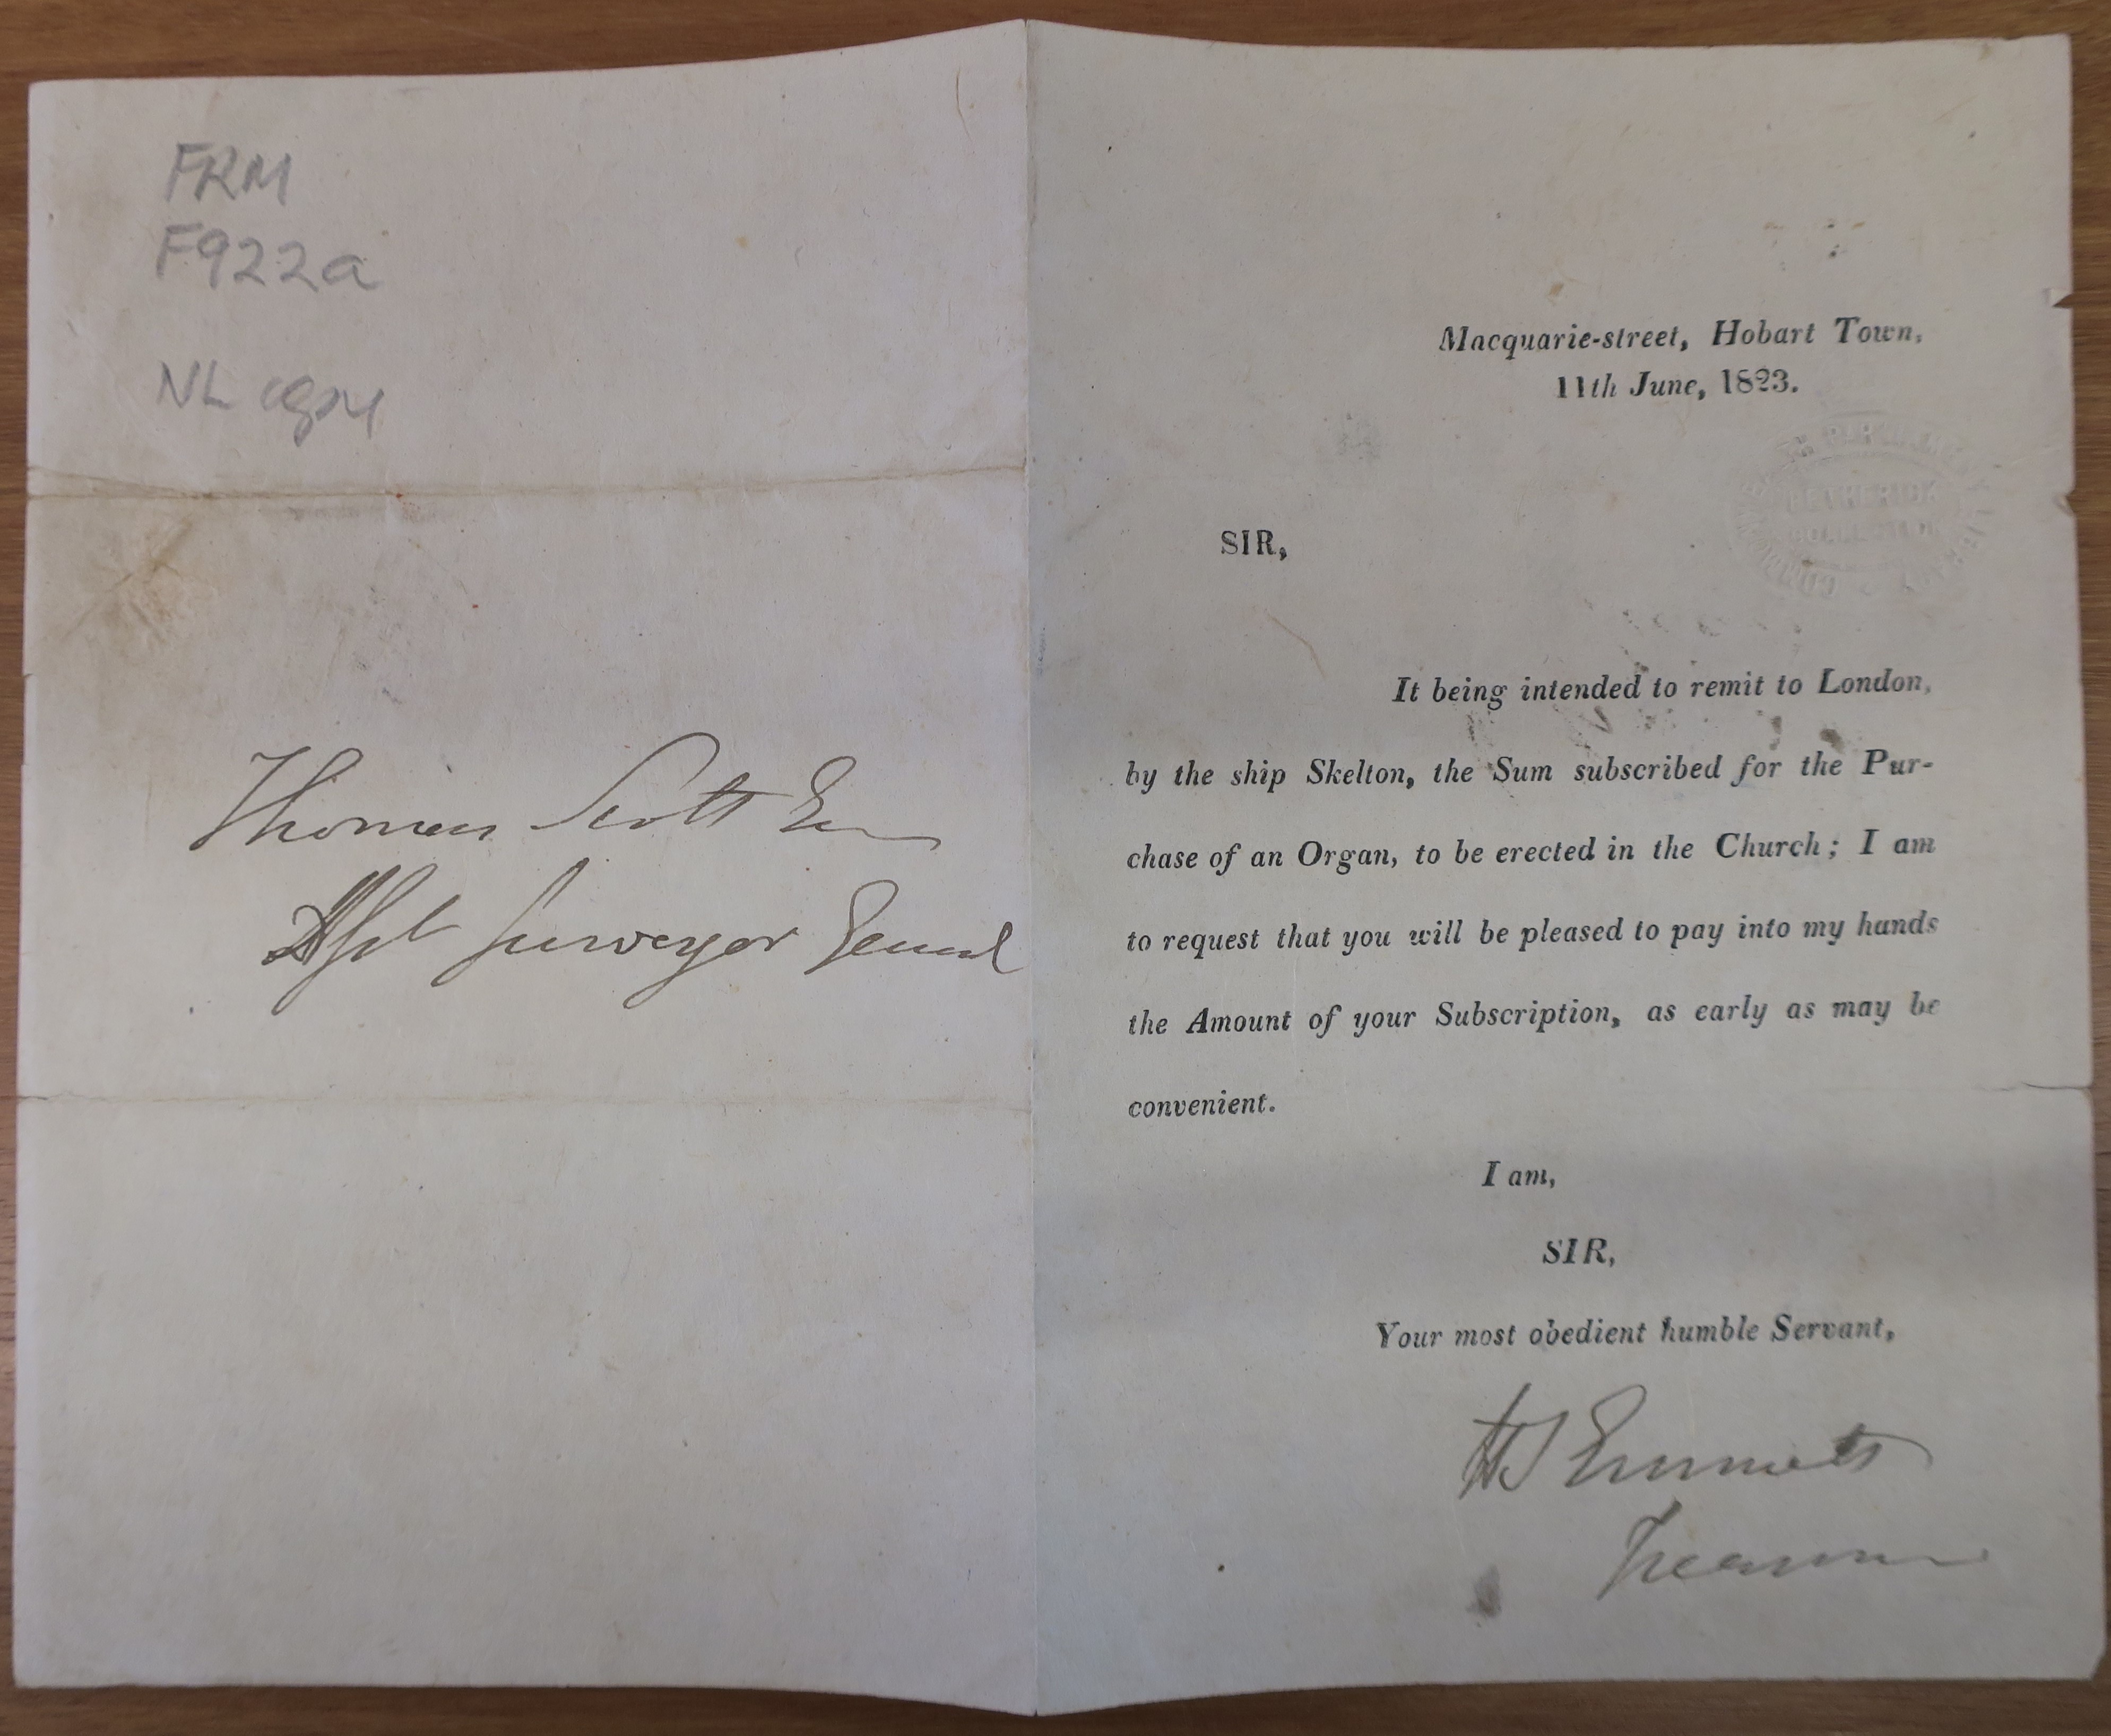 FRM
F922a
NL copy
Thomas Scott Esq
Asst Surveyor General
Macquarie-street, Hobart Town,
11th June, 1823.
COMMONWEALTH PARLIAMENT LIBRARY
PETHERICK
COLLECTION
SIR,
It being intended to remit to London,
by the ship Skelton, the Sum subscribed for the Pur-
chase of an Organ, to be erected in the Church; I am
to request that you will be pleased to pay into my hands
the Amount of your Subscription, as early as may be
convenient.
I am,
SIR,
Your most obedient humble Servant,
H J Emmett
Treasurer